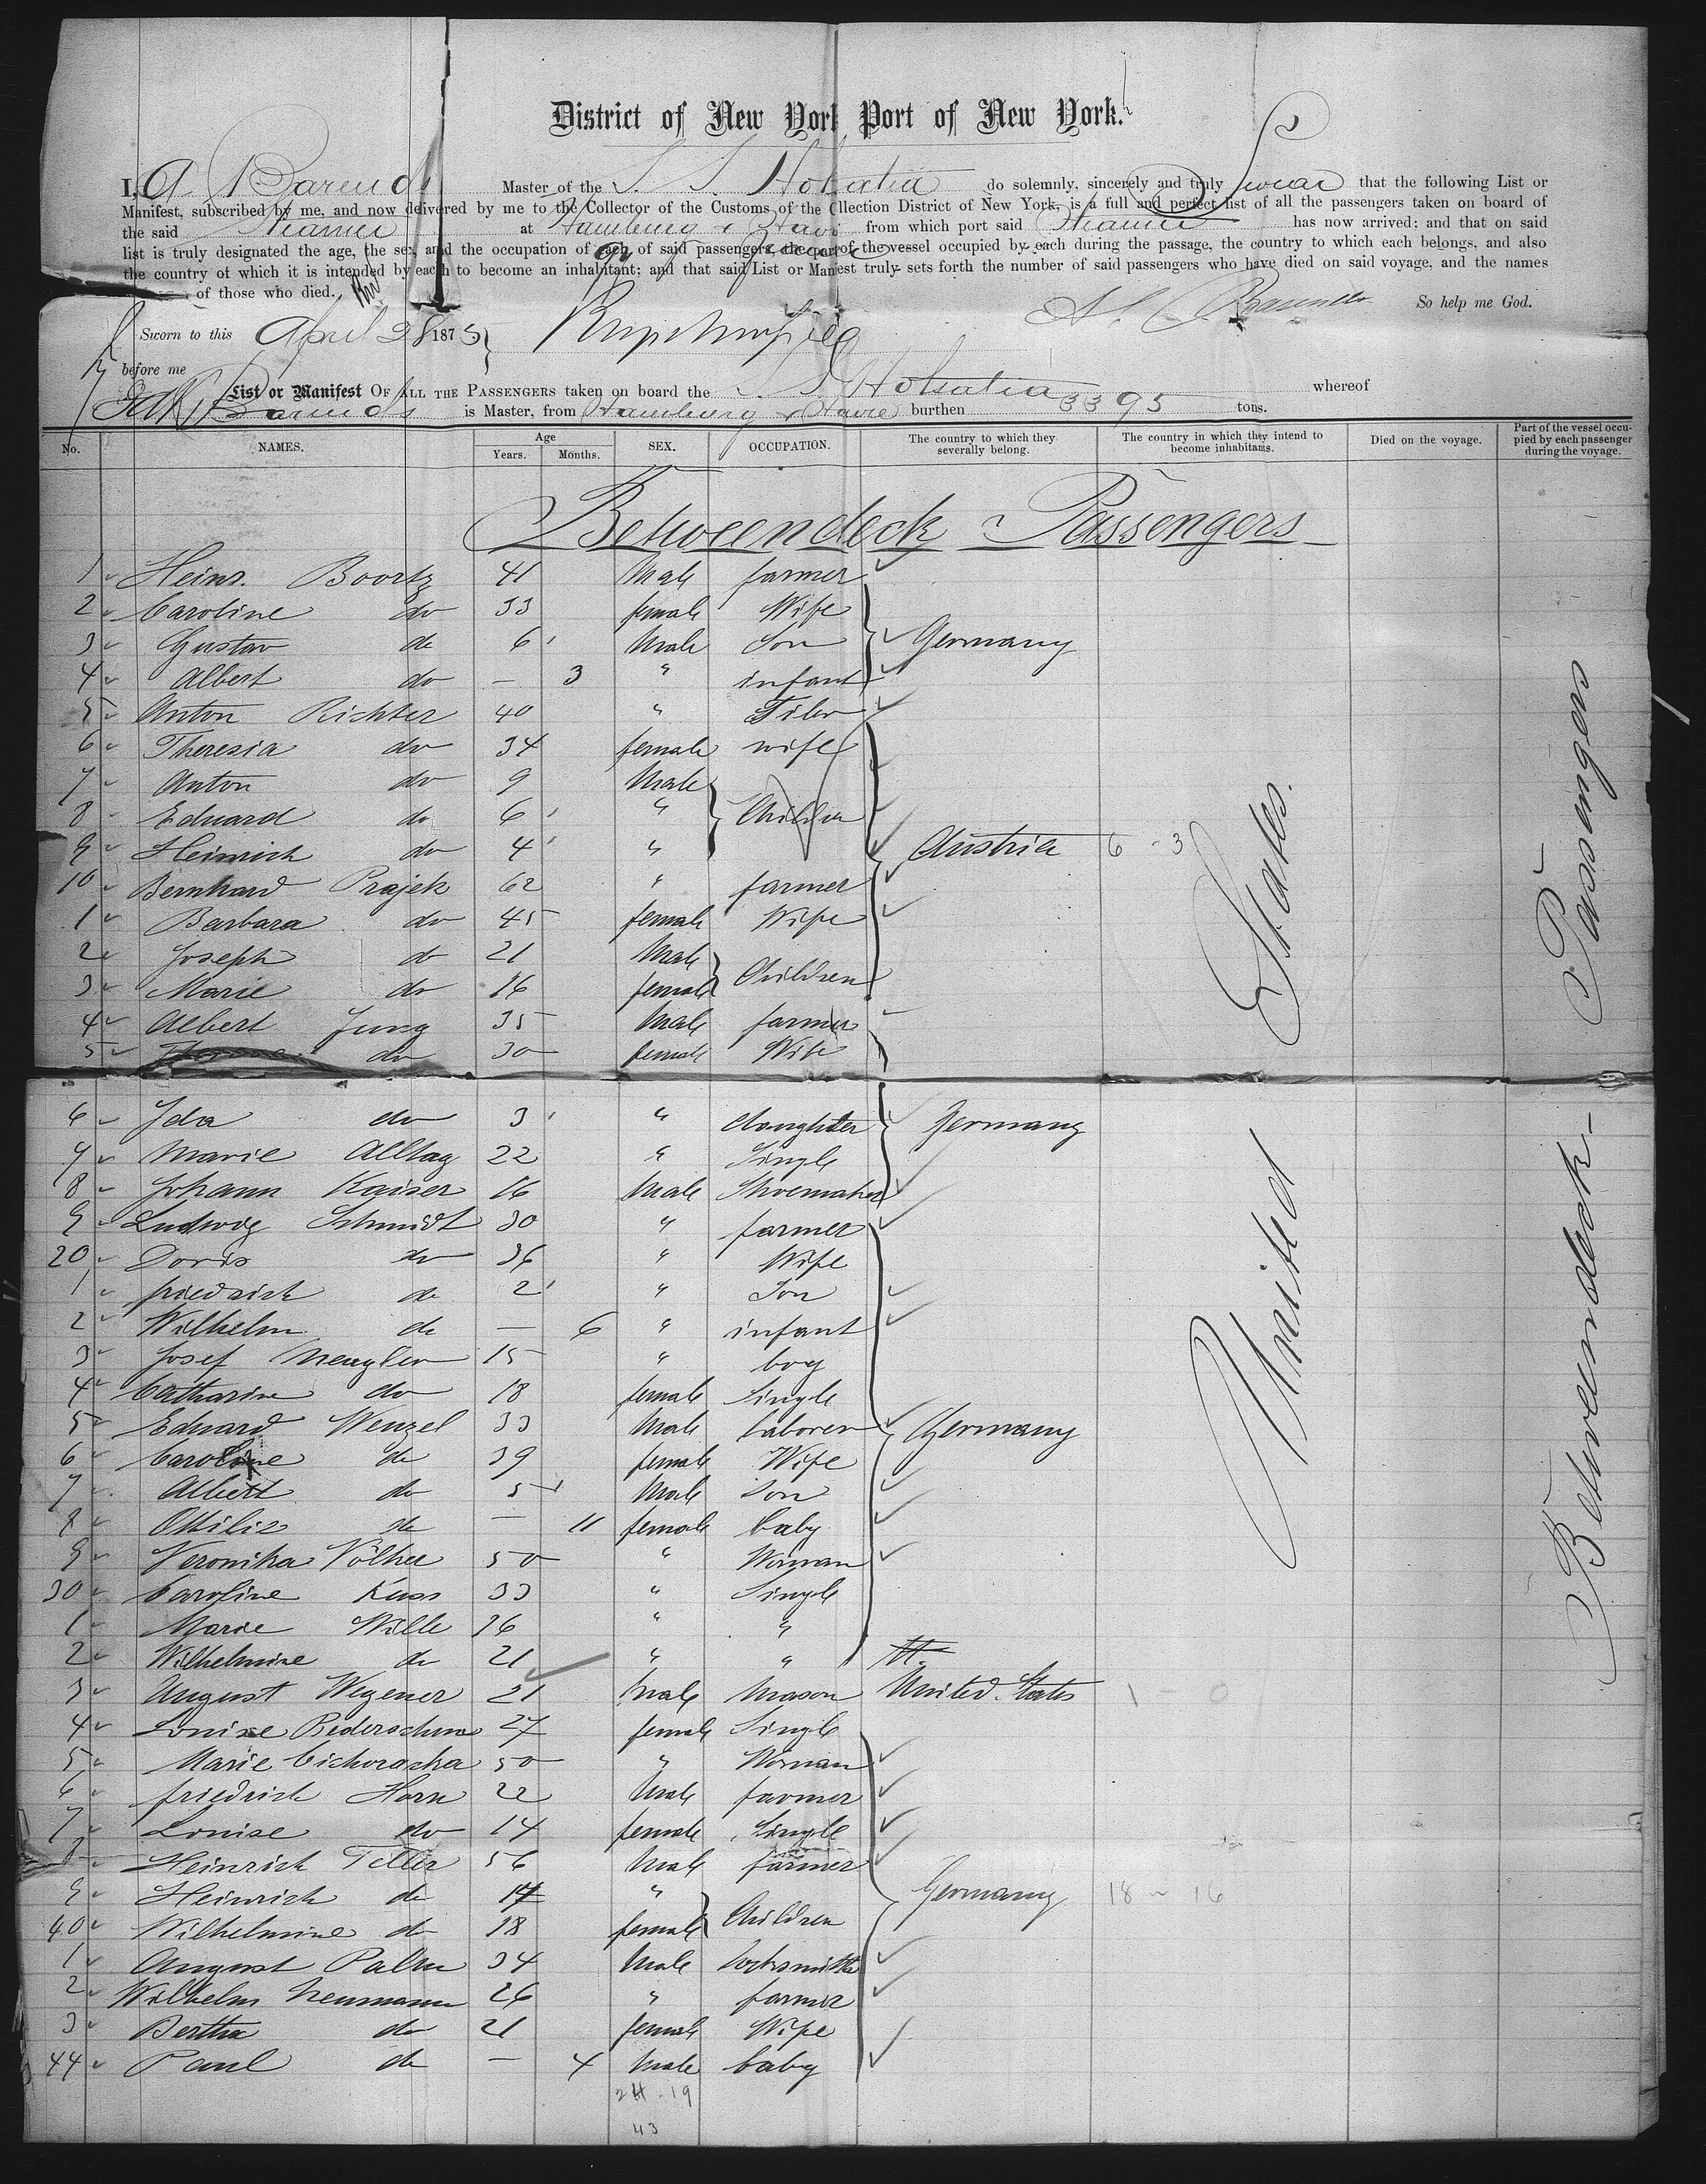 District of New York Port of New York.
I, A Barends Master of the S. S. Holsatia do solemnly, sincerely and truly swear that the following List or
Manifest, subscribed by me, and now delivered by me to the Collector of the Customs of the Cllection District of New York, is a full and perfect list of all the passengers taken on board of
the said Steamer at Hamburg & Havre from which port said Steamer has now arrived; and that on said
list is truly designated the age, the sex, and the occupation of each of said passengers, the part of the vessel occupied by each during the passage, the country to which each belongs, and also
the country of which it is intended by each to become an inhabitant; and that said List or Manifest truly sets forth the number of said passengers who have died on said voyage, and the names
of those who died.
So help me God.
Sworn to this April 28 1875
Barends
before me
List or Manifest OF ALL THE PASSENGERS taken on board the S. S. Holsatia whereof
Barends is Master, from Hamburg & Havre burthen 3395 tons.
No. NAMES. Age Years. Months. SEX. OCCUPATION. The country to which they severally belong. The country in which they intend to become inhabitants. Died on the voyage. Part of the vessel occupied by each passenger during the voyage.
Betweendeck - Passengers
1 Heinr. Boortz 41 Male farmer
2 Caroline do 33 female Wife
3 Gustav do 6 Male Son Germany
4 Albert do — 3 " infant
5 Anton Richter 40 "
6 Theresia do 34 female wife
7 Anton do 9 Male
8 Eduard do 6 " Children
9 Heinrich do 4 " Austria 6 - 3
10 Bernhard Prajek 62 " farmer
1 Barbara do 45 female Wife
2 Joseph do 21 Male
3 Marie do 16 female Children
4 Albert Jung 35 Male farmer
5 do 30 female Wife
6 Ida do 3 " daughter Germany
7 Marie Alltag 22 " Single
8 Johann Kaiser 16 Male Shoemaker
9 Ludwig Schmidt 30 " farmer
20 Doris do 36 " Wife
1 friedrich do 2 " Son
2 Wilhelm do — 6 " infant
3 Josef 15 " boy
4 Catharine do 18 female Single
5 Eduard Wenzel 33 Male laborer Germany
6 Caroline do 39 female Wife
7 Albert do 5 Male Son
8 Ottilie do — 11 female baby
9 Veronika 50 " Woman
30 Caroline Kuss 33 " Single
1 Marie Wille 26 " "
2 Wilhelmine do 21 " "
3 August Wegener 21 Male Mason United States 1 - 0
4 Louise 27 female Single
5 Marie 50 " Woman
6 friedrich Horn 22 Male farmer
7 Louise do 14 female Single
8 Heinrich Teller 56 Male farmer
9 Heinrich do 17 " Germany 18 - 16
40 Wilhelmine do 18 female Children
1 August Palm 34 Male Locksmith
2 Wilhelm Neumann 26 " farmer
3 Bertha do 21 female Wife
44 Paul do — 4 Male baby
24 - 19
43
United States.
Betweendeck - Passengers